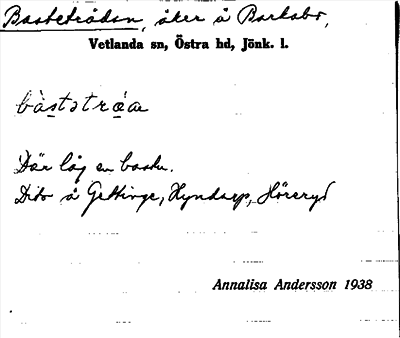 Bastetrådan, åker å Barkabo,
Vetlanda sn, Östra hd, Jönk. l.
bàstətrǻa
Där låg en bastu.
Dito å Gettinge, Hyndarp, Höreryd
Annalisa Andersson 1938